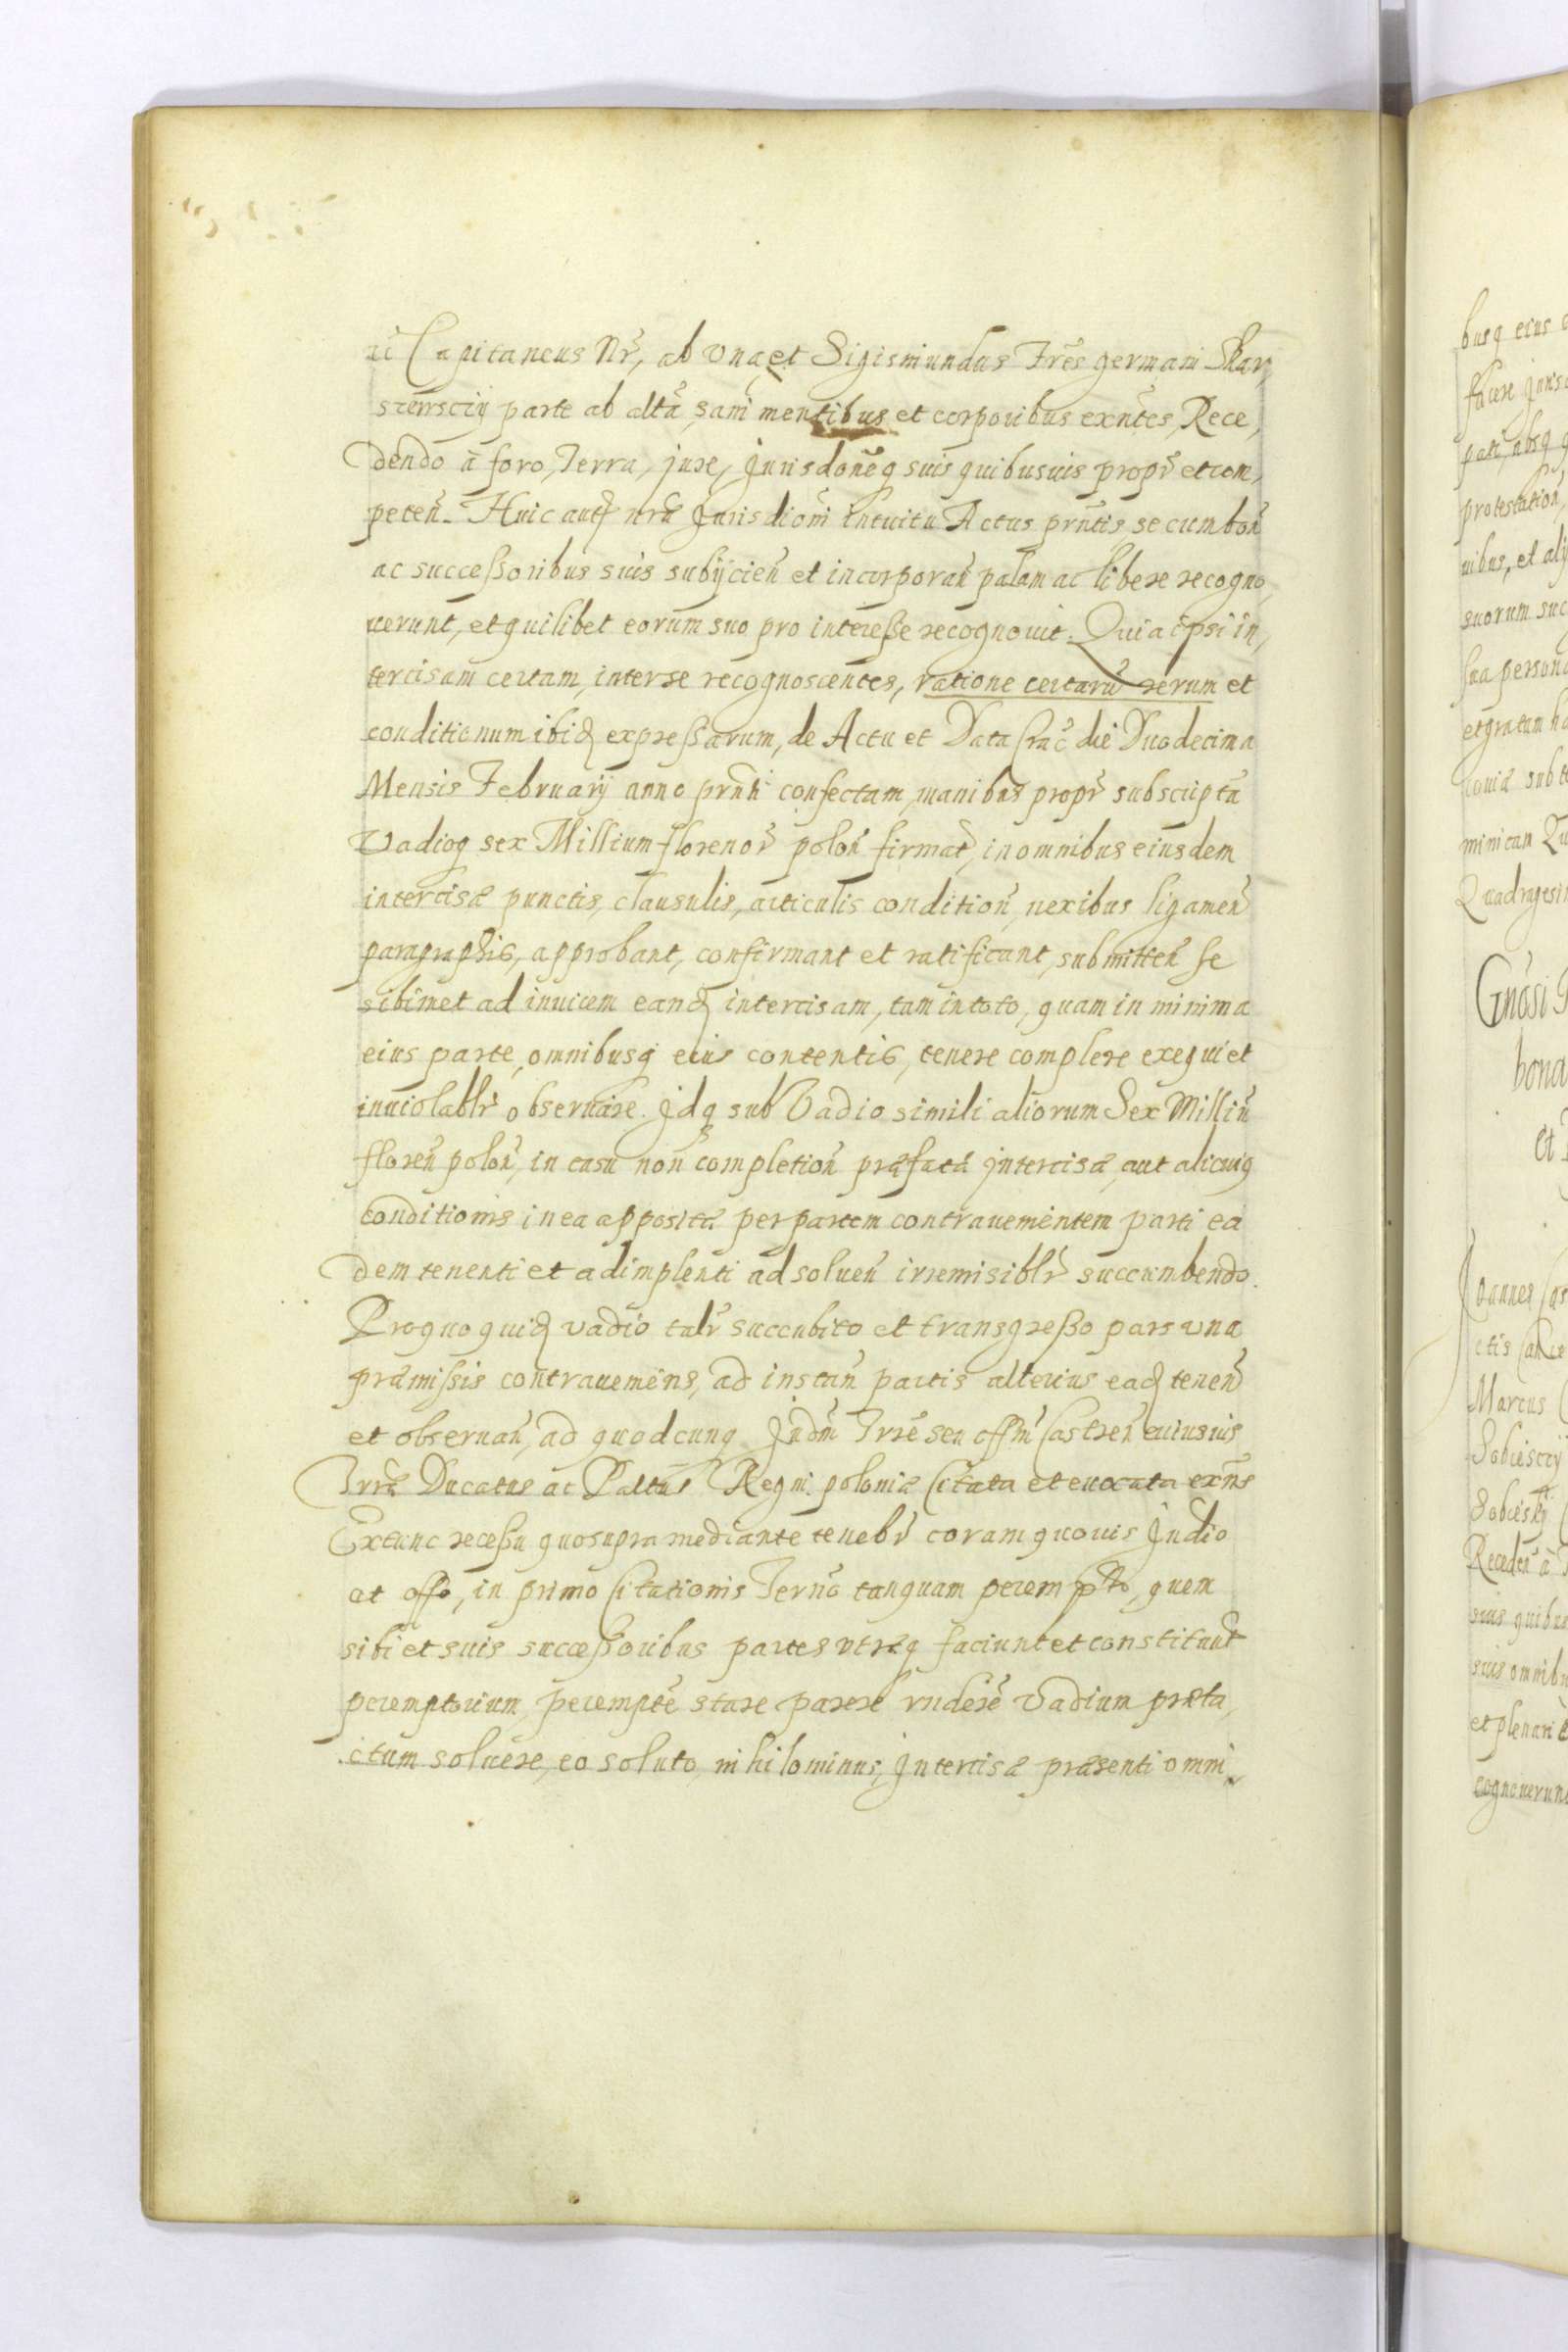 ac Capitaneus Nr̃, ab vna, et Sigismundus Frẽs germani Skar,
szewsciÿ parte ab altã, sani mentibus et corporibus exñtes, Rece,
dendo à foro, Terra, jure, Jurisdonẽq suis quibusuis propr̃ et com,
peteñ. Huic autẽ nrã Jurisdiõni intuitu Actus prñtis se cum boñ
ac successoribus suis subÿcieñ et incorporañ palam ac libere recogno,
uerunt, et quilibet eorum suo pro interesse recognouit. Quia ipsi in,
tercisam certam, inter se recognoscentes, ratione certarũ rerum et
conditionum ibid expressarum, de Actu et Data Crac̃ die Duodecima
Mensis Februarÿ anno prñti confectam, manibus propr̃ subscriptã
Vadioq sex Millium florenor̃ poloñ firmat̃, in omnibus eiusdem
intercisæ punctis, clausulis, articulis condition̄, nexibus ligameñ
paragraphis, approbant, confirmant et ratificant, submitteñ se
sibimet ad inuicem eand intercisam, tam in toto, quam in minima
eius parte, omnibusq eius contentis, tenere complere exequi et
inuiolablr̃ obseruare. Jdq sub Vadio simili aliorum Sex Milliũ
floreñ poloñ, in casu non completioñ præfatæ jntercisæ, aut alicuiq
conditionis in ea appositæ per partem contrauenientem parti ea
dem tenenti et adimplenti ad solueñ irremisiblr̃ succumbendo.
Pro quo quid vadio talr̃ succubito et transgresso pars vna
præmissis contraueniens, ad instañ partis alterius ead teneñ
et obseruañ, ad quodcunq Judm̃ Trrẽ seu offm̃ Castreñ cuiusuis
Trræ Ducatus ac Paltus Regni poloniæ Citata et euocata exñs
Extunc recessu quo supra mediante tenebr̃ coram quouis Judio
et offo, in primo Citationis Terno tanquam peremptr̃o, quem
sibi et suis successoribus partes vtræq faciunt et constituũt
peremptorium, perempte stare parere rndere Vadium præta,
ctum soluere, eo soluto, nihilominus, jntercisæ præsenti omni,